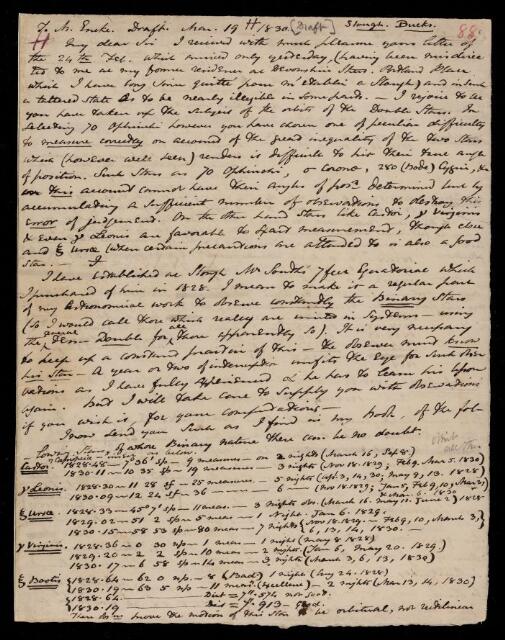 To M. Encke. Draft. Mar. 19th/1830 (Draft) Slough. Bucks. 88
My dear Sir. I received with much pleasure yours letter of
the 24th Feb. which arrived only yesterday, (having been misdirec
ted to me at my former residence at Devonshire Street. Portland Place
which I have long since quitted pour m'établir à Slough) and in such
a tattered state as to be nearly illegible in some parts. I rejoice to see
you have taken up the subject of the orbits of the Double Stars. In
selecting 70 Ophiuchi however you have chosen one of peculiar difficulty
to measure correctly on account of the great inequality of the two stars
which (however well seen) renders is difficult to hit their true angle
of position. Such stars as 70 Ophiuchi, σ Coronæ, 280 (Bode) Cygni, &c
on this account cannot have their angles of posn. determined but by
accumulating a sufficient number of observations to destroy this
error of judgement. On the other hand stars like Castor, γ Virginis
& even γ Leonis are favorable to exact measurement, though close
and ξ Ursæ (when certain precautions are attended to is also a good
star. — I
I have established at Slough Mr South's 7 feet Equatorial which
I purchased of him in 1828. I mean to make it a regular part
of my Astronomical work to observe constantly the Binary Stars
(so I would call those which really are united in Systems — using
the general term Double for all those apparently so). It is very necessary
to keep up a constant practice of this — the observer must know
his Star — A year or two of interruption unfits the Eye for such obser
vations as I have fully experienced & he has to learn his lesson
again. But I will take care to supply you with observations
if you wish it for your computations —
I now send you such as I find in my book, of the fol-
lowing Stars of whose Binary nature there can be no doubt.
Castor. 1828.48 — 7° 36' sp — measures — on 2 nights (March 16, Sept 8.)
1830.11 — 10 35 sp — 19 measures — 3 nights (Nov 18. 1829; Feb 9, Mar 5. 1830)
γ Leonis. 1828.30 — 11 28 sf — 25 measures — 5 nights (Apl. 3, 14, 30, May 9, 13. 1828)
1830.09 — 12 24 sf — 36 — 6 — (Nov 18. 1829; Jan 5, Feb 9, 10, Mar 3,
ξ Ursæ 1828.33 — 45° 7' sp — 11 meas. — 3 nights obs. (March 16. May 10. June 2) 1828
1829.02 — 51 2 sp — 5 meas — 1 night. Jan 6. 1829.
1830.15 — 58 53 sp — 80 meas — 7 nights {Nov 18. 1829 — Feb 9, 10, March 3,
6, 13, 14, 1830. —
γ Virginis. 1828.36 — 0 30 np — 1 meas — 1 night (May 8 1828)
1829.20 — 2 2 sp — 10 meas — 2 nights. (Jan 6, May 20. 1829.)
1830.17 — 6 58 sp — 14 meas — 3 nights (March 3, 6, 13, 1830)
ξ Bootis {1828.64 — 62 0 np — 8 (Bad) 1 night (Aug 24. 1828)
1830.19 — 63 5 np — 11 meas. (Excellent) — 2 nights (Mar 13, 14, 1830)
{1828.64. — Dist = 7".574 not good.
1830.19 — Dist = 7".913 — good.
These obs prove the motion of this Star to be orbitual, not rectilinear